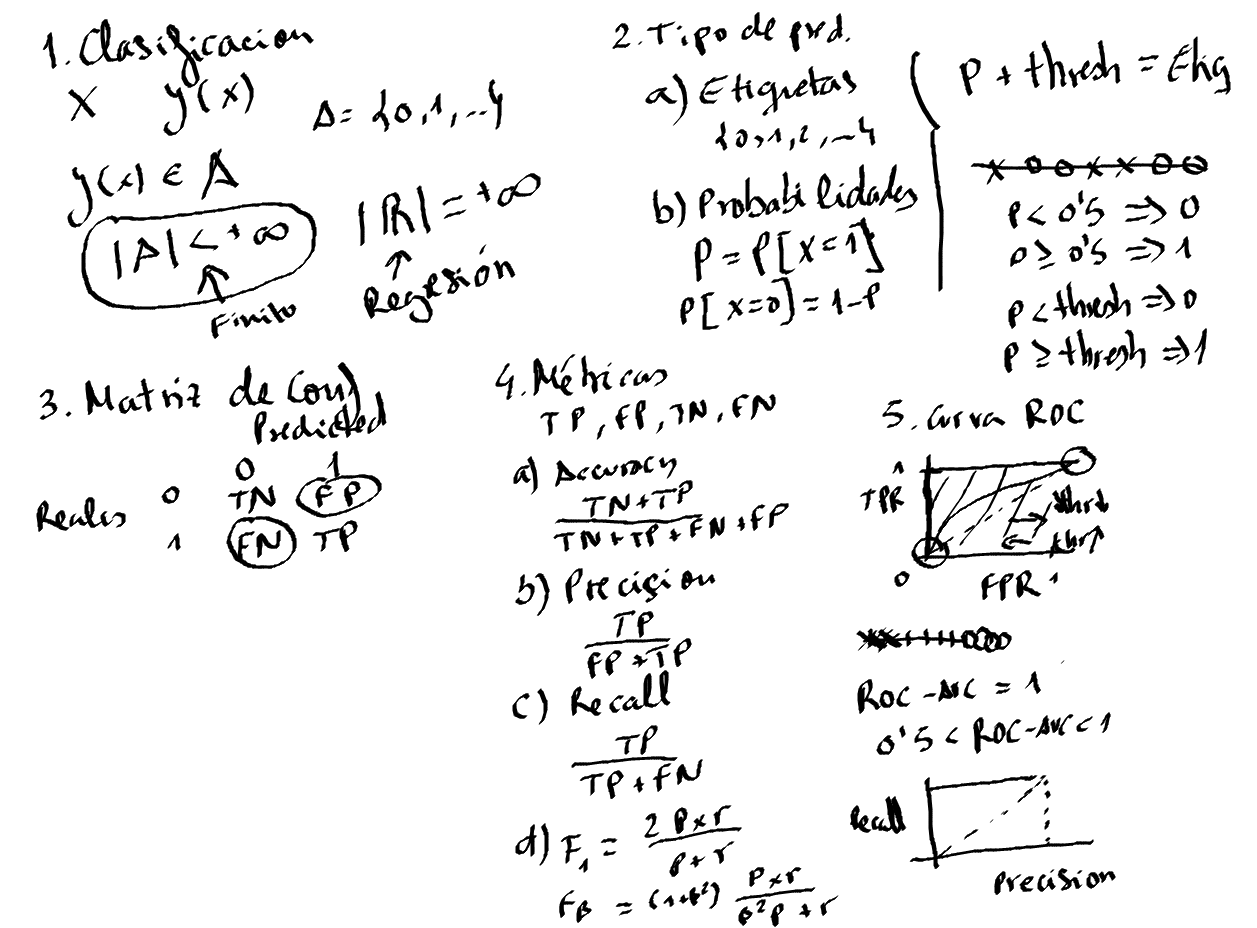 1. Clasificacion
X y(x)
A = {0, 1, ...}
y(x) ∈ A
|A| < +∞
Finito
|R| = +∞
Regresión
2. Tipo de pred.
a) Etiquetas
{0, 1, 2, ...}
b) Probabilidades
P = P[x=1]
P[x=0] = 1-P
P + thresh = Etiq
x o o x x o o
P < 0'5 => 0
p ≥ 0'5 => 1
P < thresh => 0
P ≥ thresh => 1
3. Matriz de Conf
Predicted
0 1
Reales 0 TN FP
1 FN TP
4. Métricas
TP, FP, TN, FN
a) Accuracy
TN+TP
TN+TP+FN+FP
b) Precision
TP
FP+TP
c) Recall
TP
TP+FN
d) F1 = 2 P×r
p+r
Fβ = (1+β²) P×r
β²P + r
5. Curva ROC
1
TPR
thr↓
thr↑
0 FPR 1
ROC-AUC = 1
0'5 < ROC-AUC < 1
Recall
Precision